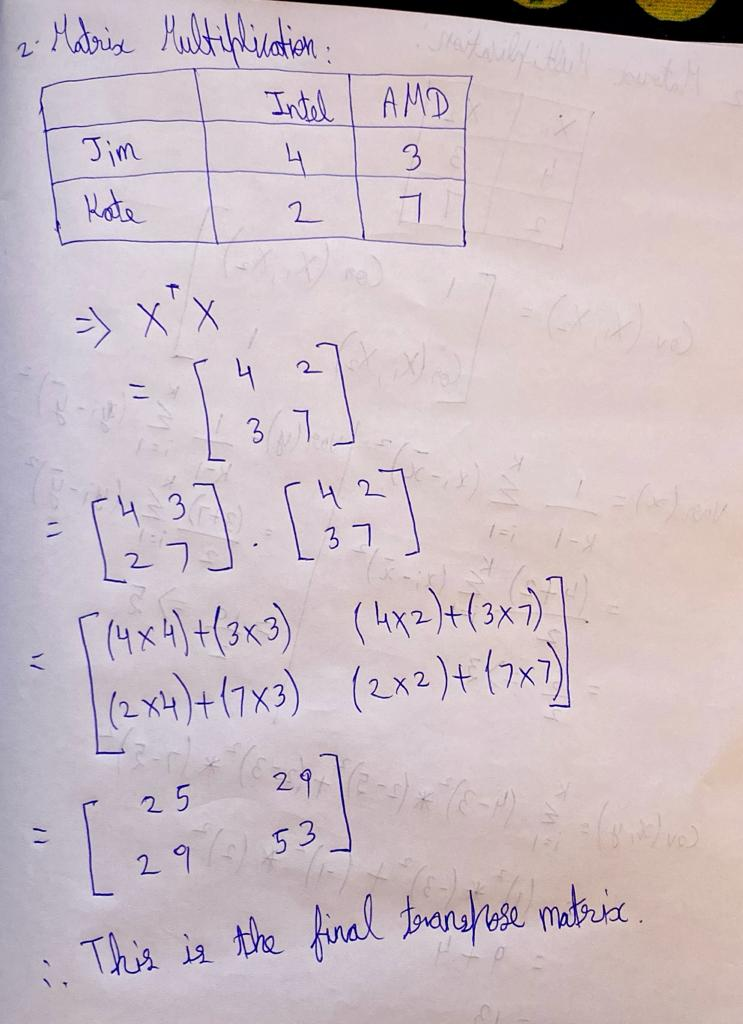 2. Matrix Multiplication:
Intel AMD
Jim 4 3
Kate 2 7
=> X^T X
= [ 4 2
3 7 ]
= [ 4 3
2 7 ] . [ 4 2
3 7 ]
= [ (4x4)+(3x3) (4x2)+(3x7)
(2x4)+(7x3) (2x2)+(7x7) ]
= [ 25 29
29 53 ]
∴ This is the final transpose matrix.